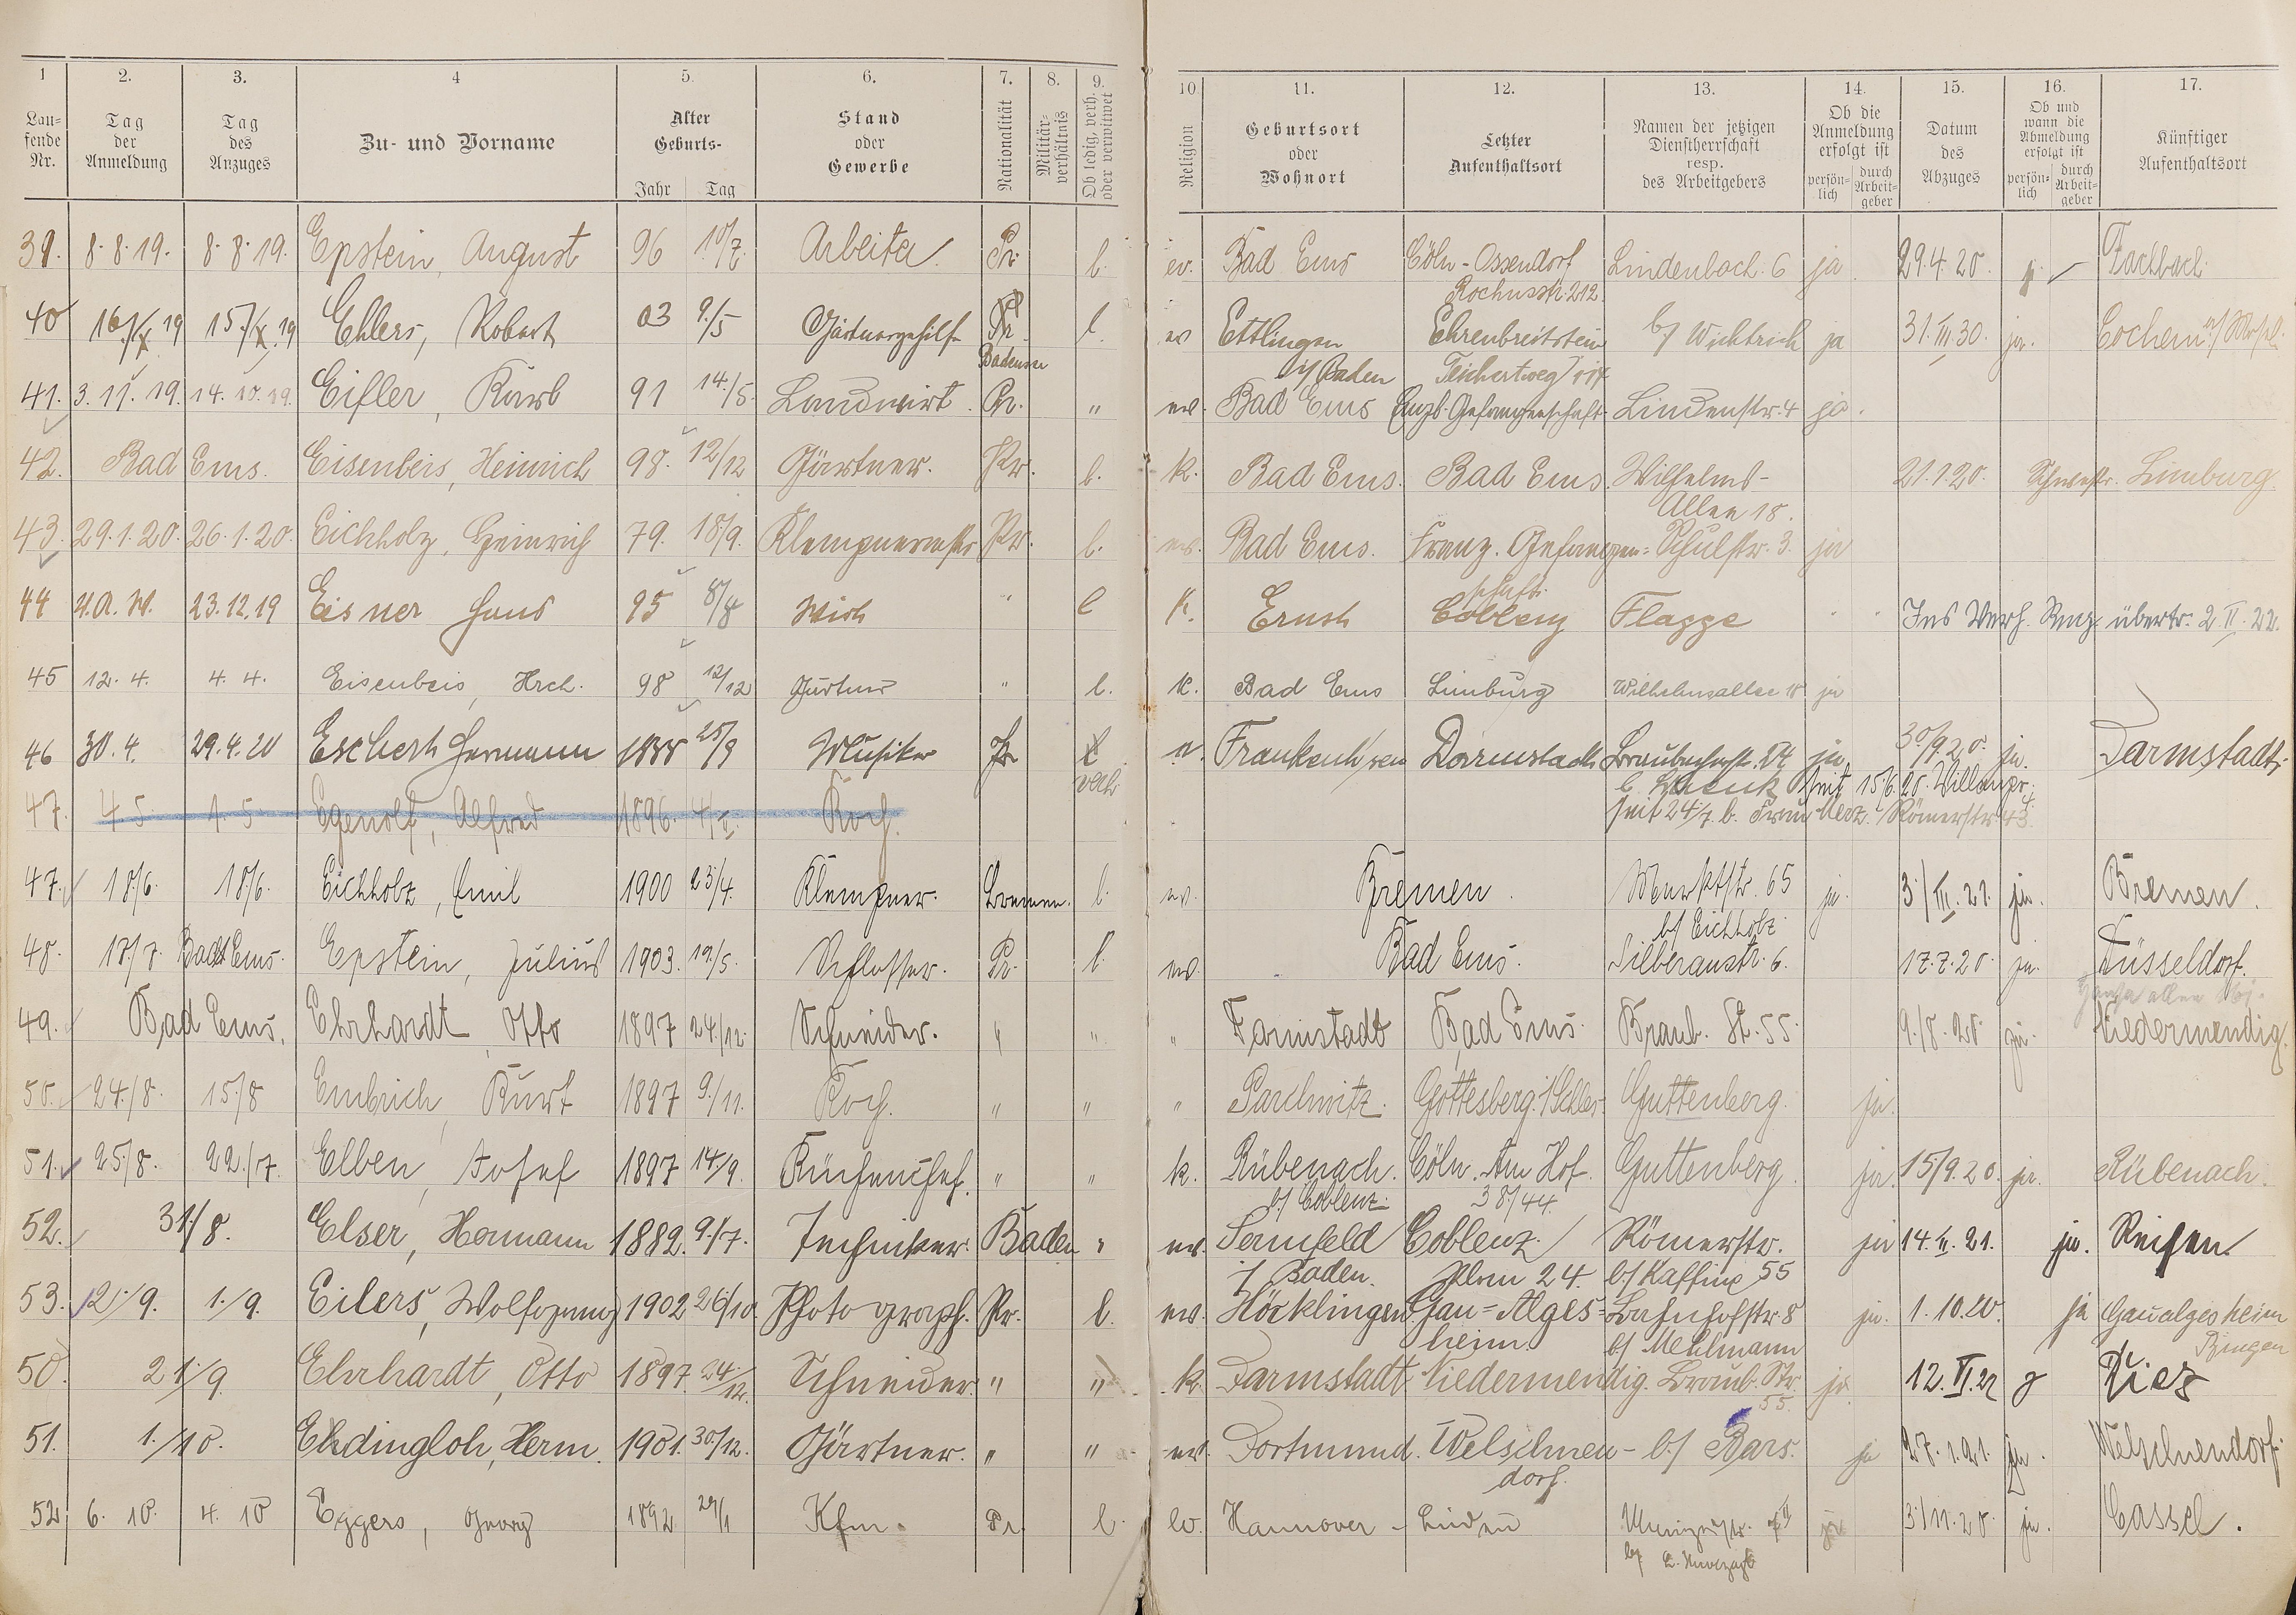 1 2. 3. 4 5. 6. 7. 8. 9. 10 11. 12. 13. 14. 15. 16. 17.
Lau-
fende
Nr.
Tag
der
Anmeldung
Tag
des
Anzuges
Zu- und Vorname
Alter
Geburts-
Jahr Tag
Stand
oder
Gewerbe
Nationalität
Militär-
verhältnis
Ob ledig, verh.
oder verwitwet
Religion
Geburtsort
oder
Wohnort
Letzter
Aufenthaltsort
Namen der jetzigen
Dienstherrschaft
resp.
des Arbeitgebers
Ob die
Anmeldung
erfolgt ist
persön-
lich
durch
Arbeit-
geber
Datum
des
Abzuges
Ob und
wann die
Abmeldung
erfolgt ist
persön-
lich
durch
Arbeit-
geber
Künftiger
Aufenthaltsort
39. 8.8.19. 8.8.19. Epstein, August 96 10/7. Arbeiter Pr. l. ev. Bad Ems Cöln-Ossendorf Lindenbach 6 ja 29.4.20. Fachbach
Rochusstr. 212.
40 16./X 19 15./X 19 Ehlers, Robert 03 9./5 Gärtnergehilfe Pr. l. ev Ettlingen Ehrenbreitstein b/ Wichtrich ja 31.III 30. ja. Cochem a/ Mosel
Badenser i/ Baden Teichertweg
41. 3.11.19. 14.10.19. Eifler, Karl 91 14./5. Landwirt Pr. " ev. Bad Ems Engl. Gefangenschaft Lindenstr. 4 ja.
42. Bad Ems. Eisenbeis, Heinrich 98. 12/12 Gärtner. Pr. l. k. Bad Ems. Bad Ems. Wilhelms- 21.1.20. Limburg.
Allee 18.
43. 29.1.20. 26.1.20. Eichholz, Heinrich 79. 18/9. Klempnermstr. Pr. l. ev. Bad Ems. Franz. Gefangen= Schulstr. 3. ja
schaft.
44 U.A.W. 23.12.19 Eisner Hans 95 8/8 Wirt " l K. Ernst Coblenz Flagge Ins Verh. Reg. übertr. 2.II.22.
45 12.4. 4.4. Eisenbeis, Hrch. 98 12/12 Gärtner " l. K. Bad Ems Limburg Wilhelmsallee 18 ja
46 30.4. 29.4.20 Eschert Hermann 1888 25/9 Musiker Pr l ev. Darmstadt 30/9.20. ja. Darmstadt
verh. seit 15/6.20.
47. 4 5 1. 5 Egenolf, Alfred 1896. Koch. seit 24/7. b. Frau Römerstr. 43.
47. 18/6. 18/6. Eichholz, Emil 1900 23/4. Klempner. Bremen. l. ev. Bremen. Marktstr. 65 ja. 3/III.21. ja. Bremen.
b/ Eichholz
48. 17/7. Bad Ems. Epstein, Julius 1903. 19./5. Schlosser. Pr. l. ev. Bad Ems. Silberaustr. 6. 17.7.20. ja. Düsseldorf.
49. Bad Ems. Ehrhardt, Otto 1897 24./12. Schneider. " " " Darmstadt Bad Ems. Braub. St. 55. 9./8.20 ja. Niedermendig.
50. 24./8. 15./8 Embrich, Kurt 1897 9./11. Koch. " " " Parchwitz. Gottesberg i/Schles. Guttenberg. ja.
51. 25./8. 22./7. Elben, Josef 1897 14/9. Küchenchef. " " k. Rübenach. Cöln. Am Hof. Guttenberg. ja. 15/9.20. ja. Rübenach.
b/ Coblenz. 38/44.
52. 31./8. Elser, Hermann 1882. 9./7. Techniker. Baden " ev. Sennfeld Coblenz. Römerstr. ja 14.II.21. ja. Reisen.
i/ Baden. Plan 24. b/ Kaffine 55
53. 2./9. 1./9. Eilers, Wolfgang 1902 26/10. Photograph. Pr. l. ev. Höcklingen Gau=Alges= Bahnhofstr. 8 ja. 1.10.20. ja Gaualgesheim
heim b/ Mehlmann Bingen
50. 21./9 Ehrhardt, Otto 1897 24./12. Schneider " " k. Darmstadt Niedermendig. Braub. Str. ja. 12.VI.22 Diez
55.
51. 1./10. Ehdingloh, Herm. 1901. 30/12. Gärtner. " " ev. Dortmund. Welschnen- b/ Bars. ja 27.1.21. ja. Welschnendorf.
dorf.
52. 6. 10. 4. 10 Eggers, Georg 1892 29/1 Kfm. Pr. l. ev. Hannover - Linden 3/11.20. ja. Cassel.